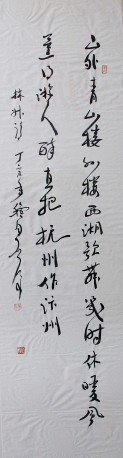 山外青山楼外楼西湖歌舞几时休暖风
薰得游人醉直把杭州作汴州
林升诗 丁亥年